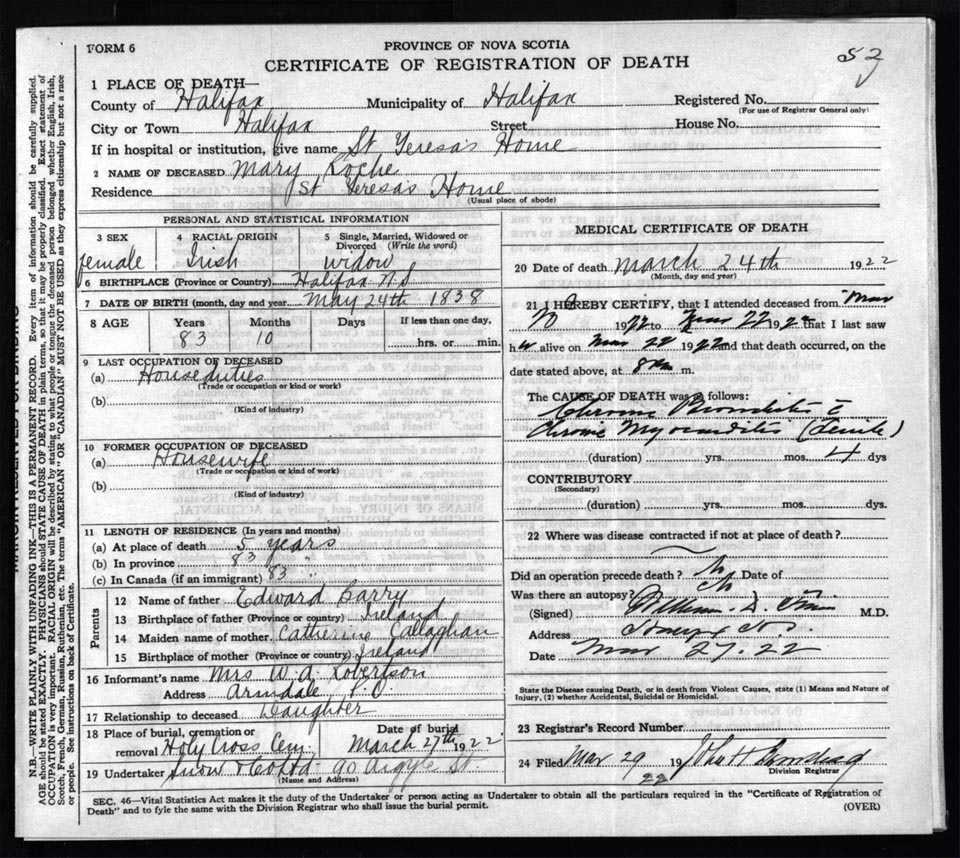 FORM 6
PROVINCE OF NOVA SCOTIA
CERTIFICATE OF REGISTRATION OF DEATH
52
1 PLACE OF DEATH—
County of Halifax Municipality of Halifax Registered No.
(For use of Registrar General only)
City or Town Halifax Street House No.
If in hospital or institution, give name St Teresa's Home
2 NAME OF DECEASED Mary Roche
Residence St Teresa's Home
(Usual place of abode)
PERSONAL AND STATISTICAL INFORMATION
3 SEX 4 RACIAL ORIGIN 5 Single, Married, Widowed or Divorced (Write the word)
female Irish widow
6 BIRTHPLACE (Province or Country) Halifax N.S
7 DATE OF BIRTH (month, day and year) May 24th 1838
8 AGE Years Months Days If less than one day,
83 10 hrs. or min.
9 LAST OCCUPATION OF DECEASED
(a) Houseduties
(Trade or occupation or kind or work)
(b)
(Kind of industry)
10 FORMER OCCUPATION OF DECEASED
(a) Housewife
(Trade or occupation or kind of work)
(b)
(Kind of industry)
11 LENGTH OF RESIDENCE (In years and months)
(a) At place of death 5 years
(b) In province 83 "
(c) In Canada (if an immigrant) 83 "
Parents
12 Name of father Edward Barry
13 Birthplace of father (Province or country) Ireland
14 Maiden name of mother Catherine Callaghan
15 Birthplace of mother (Province or country) Ireland
16 Informant's name Mrs W.A. Robertson
Address Armdale P.O.
17 Relationship to deceased Daughter
18 Place of burial, cremation or removal Holy Cross Cem. Date of burial March 27th 1922
19 Undertaker Snow & Co Ltd - 90 Argyle St.
(Name and Address)
MEDICAL CERTIFICATE OF DEATH
20 Date of death March 24th 1922
(Month, day and year)
21 I HEREBY CERTIFY, that I attended deceased from Mar
1922 to Mar 22 1922 that I last saw
her alive on Mar 22 1922 and that death occurred, on the
date stated above, at 8 m.
The CAUSE OF DEATH was as follows:
Chronic Bronchitis c̄
Chronic Myocarditis (senile)
(duration) yrs. mos. 4 dys
CONTRIBUTORY
(Secondary)
(duration) yrs. mos. dys.
22 Where was disease contracted if not at place of death?
Did an operation precede death? No Date of
Was there an autopsy? No
(Signed) William D. M.D.
Address N.S.
Date Mar 27. 22
State the Disease causing Death, or in death from Violent Causes, state (1) Means and Nature of
Injury, (2) whether Accidental, Suicidal or Homicidal.
23 Registrar's Record Number
24 Filed Mar 29 22 19 John H
Division Registrar
SEC. 46—Vital Statistics Act makes it the duty of the Undertaker or person acting as Undertaker to obtain all the particulars required in the "Certificate of Registration of
Death" and to fyle the same with the Division Registrar who shall issue the burial permit.
(OVER)
MARGIN RESERVED FOR BINDING
N.B.—WRITE PLAINLY WITH UNFADING INK—THIS IS A PERMANENT RECORD. Every item of information should be carefully supplied.
AGE should be stated EXACTLY. PHYSICIANS should STATE CAUSE OF DEATH in plain terms, so that it may be properly classified. Exact statement of
OCCUPATION is very important. RACIAL ORIGIN will be described by stating to what people or tongue the deceased person belonged whether English, Irish,
Scotch, French, German, Russian, Ruthenian, etc. The terms "AMERICAN" OR "CANADIAN" MUST NOT BE USED as they express citizenship but not a race
or people. See instructions on back of Certificate.